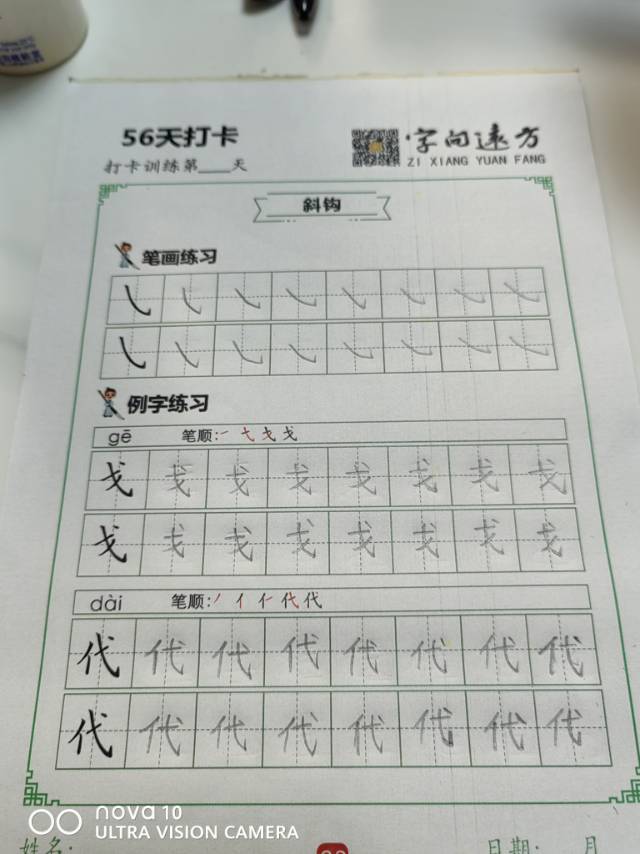 56天打卡
打卡训练第___天
字向远方
ZI XIANG YUAN FANG
斜钩
笔画练习
㇂ ㇂ ㇂ ㇂ ㇂ ㇂ ㇂ ㇂
㇂ ㇂ ㇂ ㇂ ㇂ ㇂ ㇂ ㇂
例字练习
gē 笔顺:一 弋 戈 戈
戈 戈 戈 戈 戈 戈 戈 戈
戈 戈 戈 戈 戈 戈 戈 戈
dài 笔顺:丿 亻 仁 代 代
代 代 代 代 代 代 代 代
代 代 代 代 代 代 代 代
姓名: 日期: 月
nova 10
ULTRA VISION CAMERA